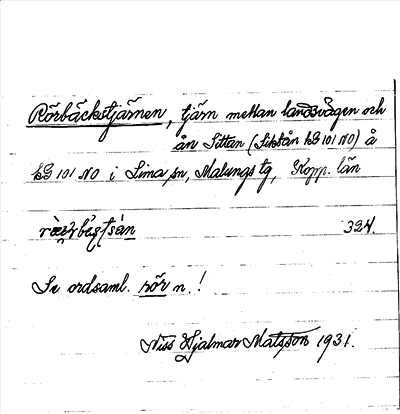 Rörbäckstjärnen, tjärn mellan landsvägen och
ån Sittan (Sittån kB 101 NO) å
kB 101 NO i Lima sn, Malungs tg, Kopp. län
324.
Se ordsaml. rör n.!
Niss Hjalmar Matsson 1931.